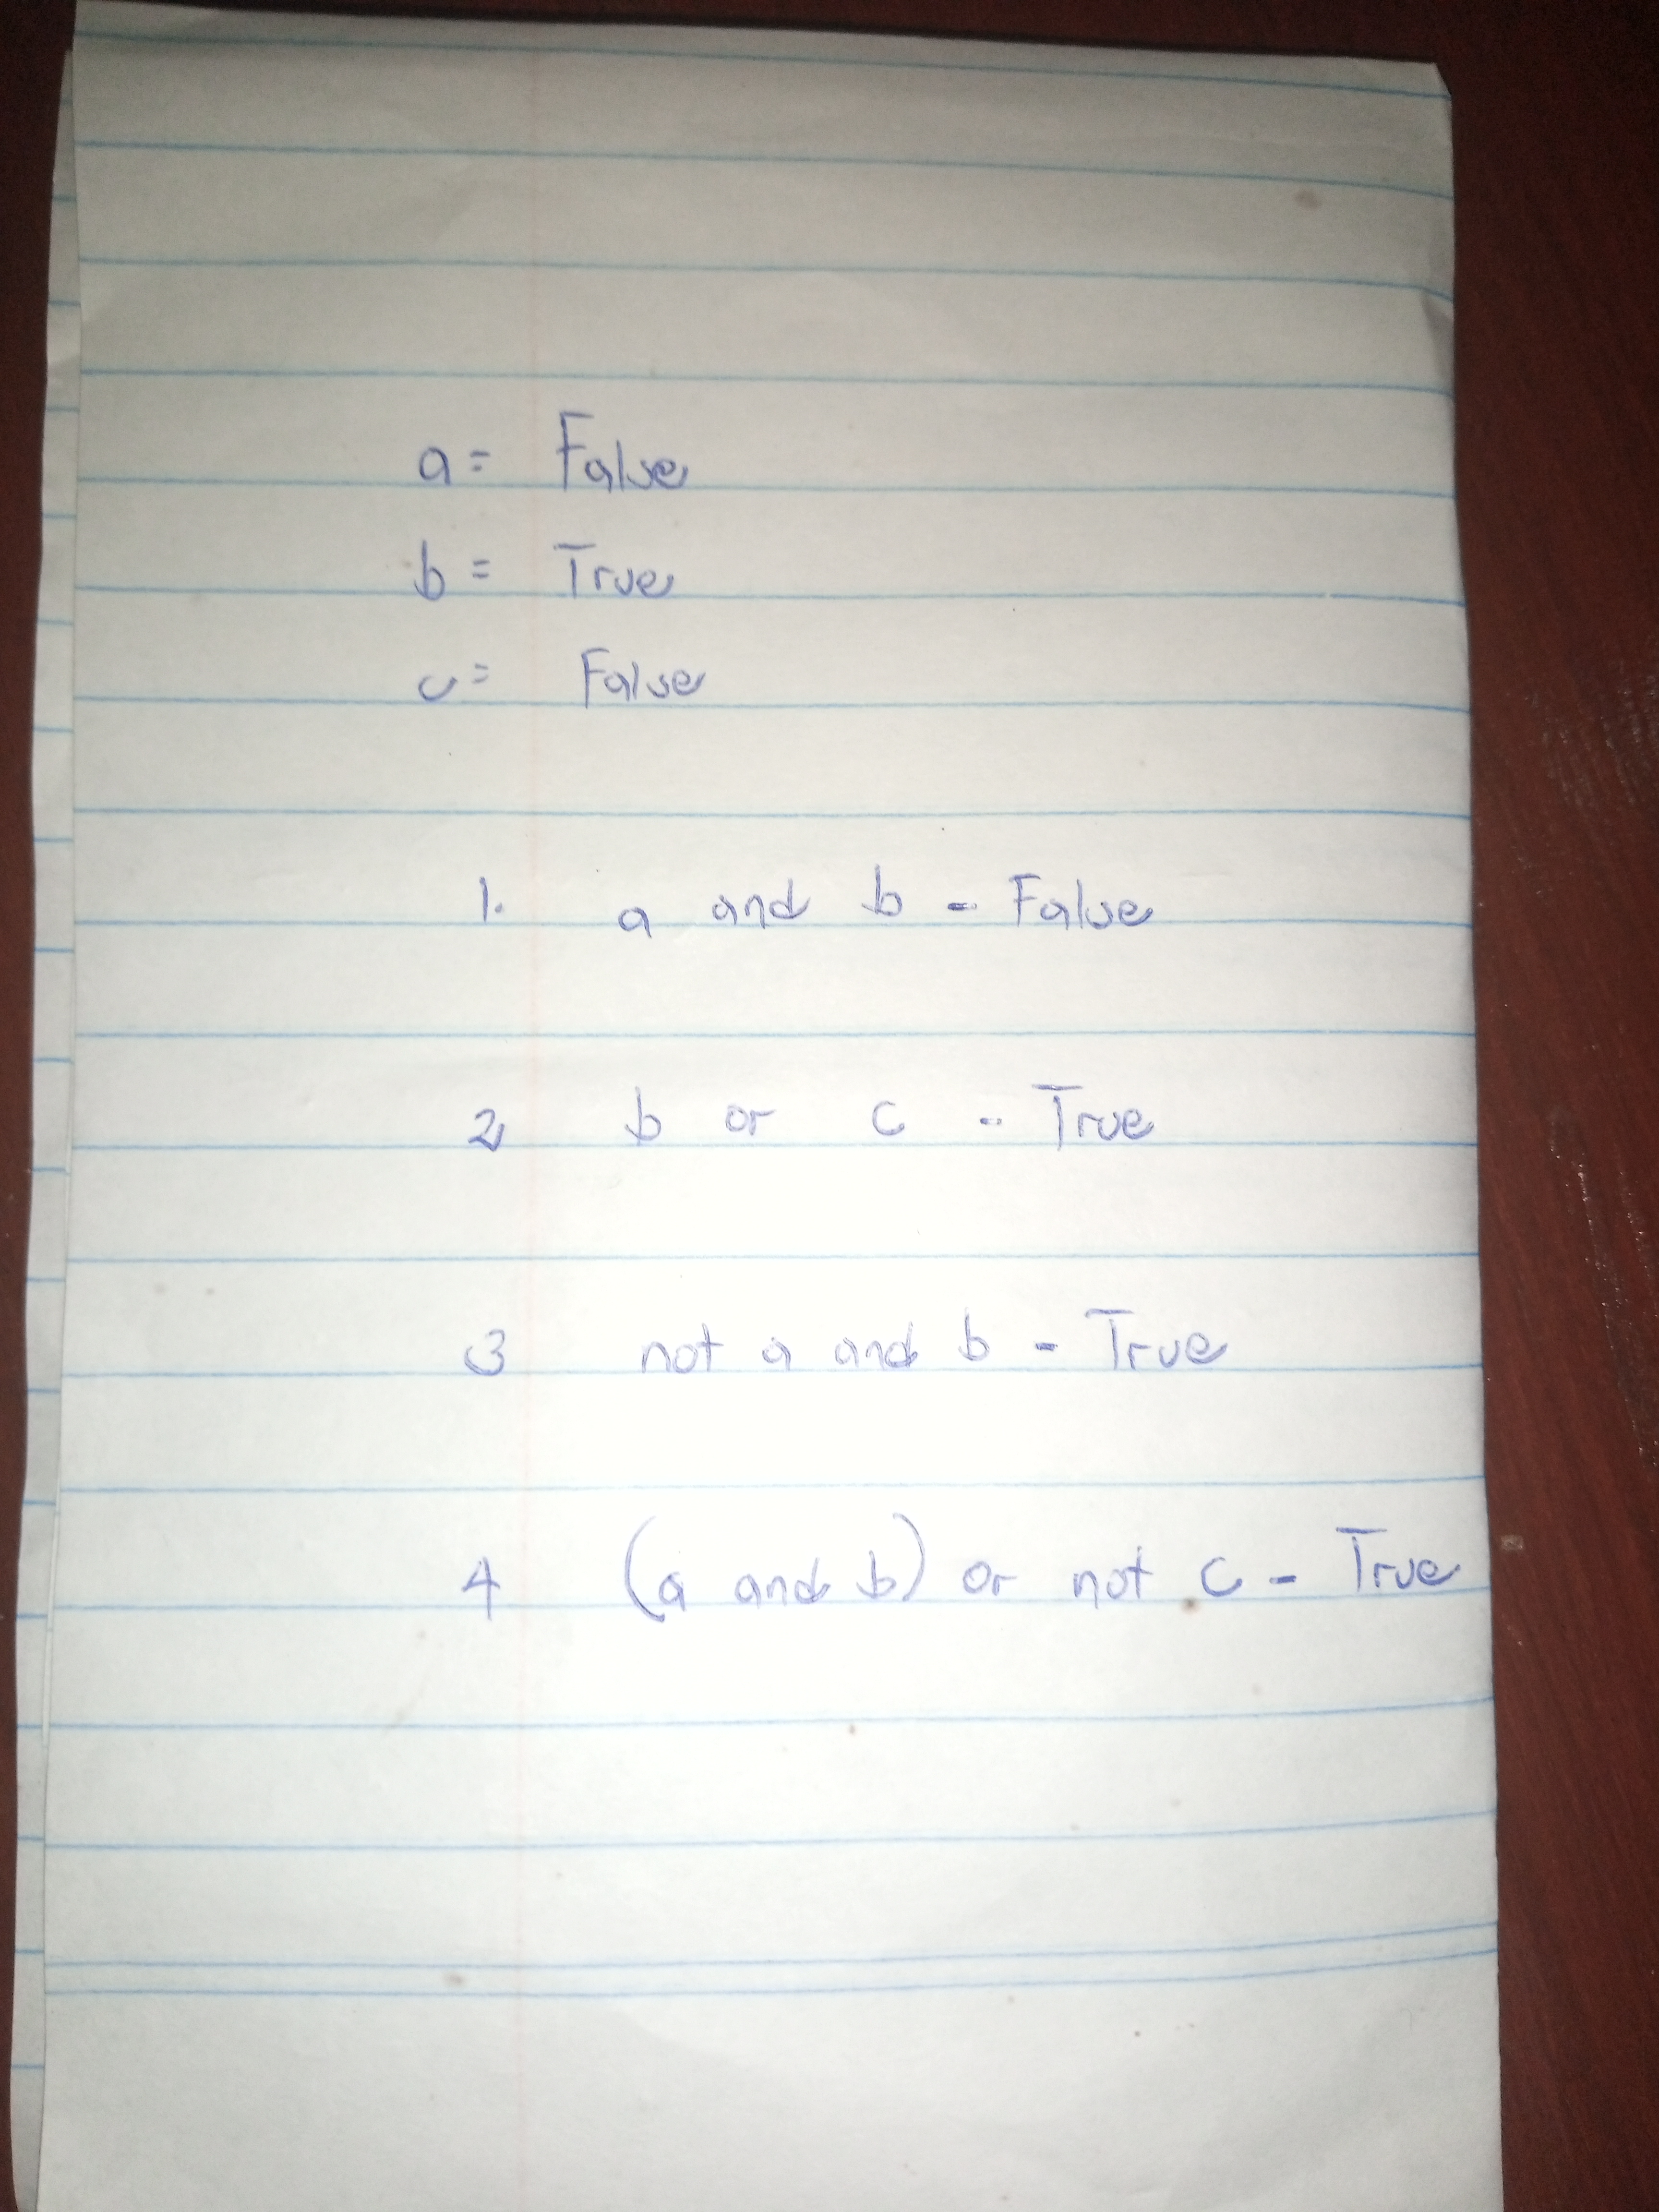 a = False
b = True
c = False
1. a and b - False
2, b or c - True
3 not a and b - True
4 (a and b) or not c - True